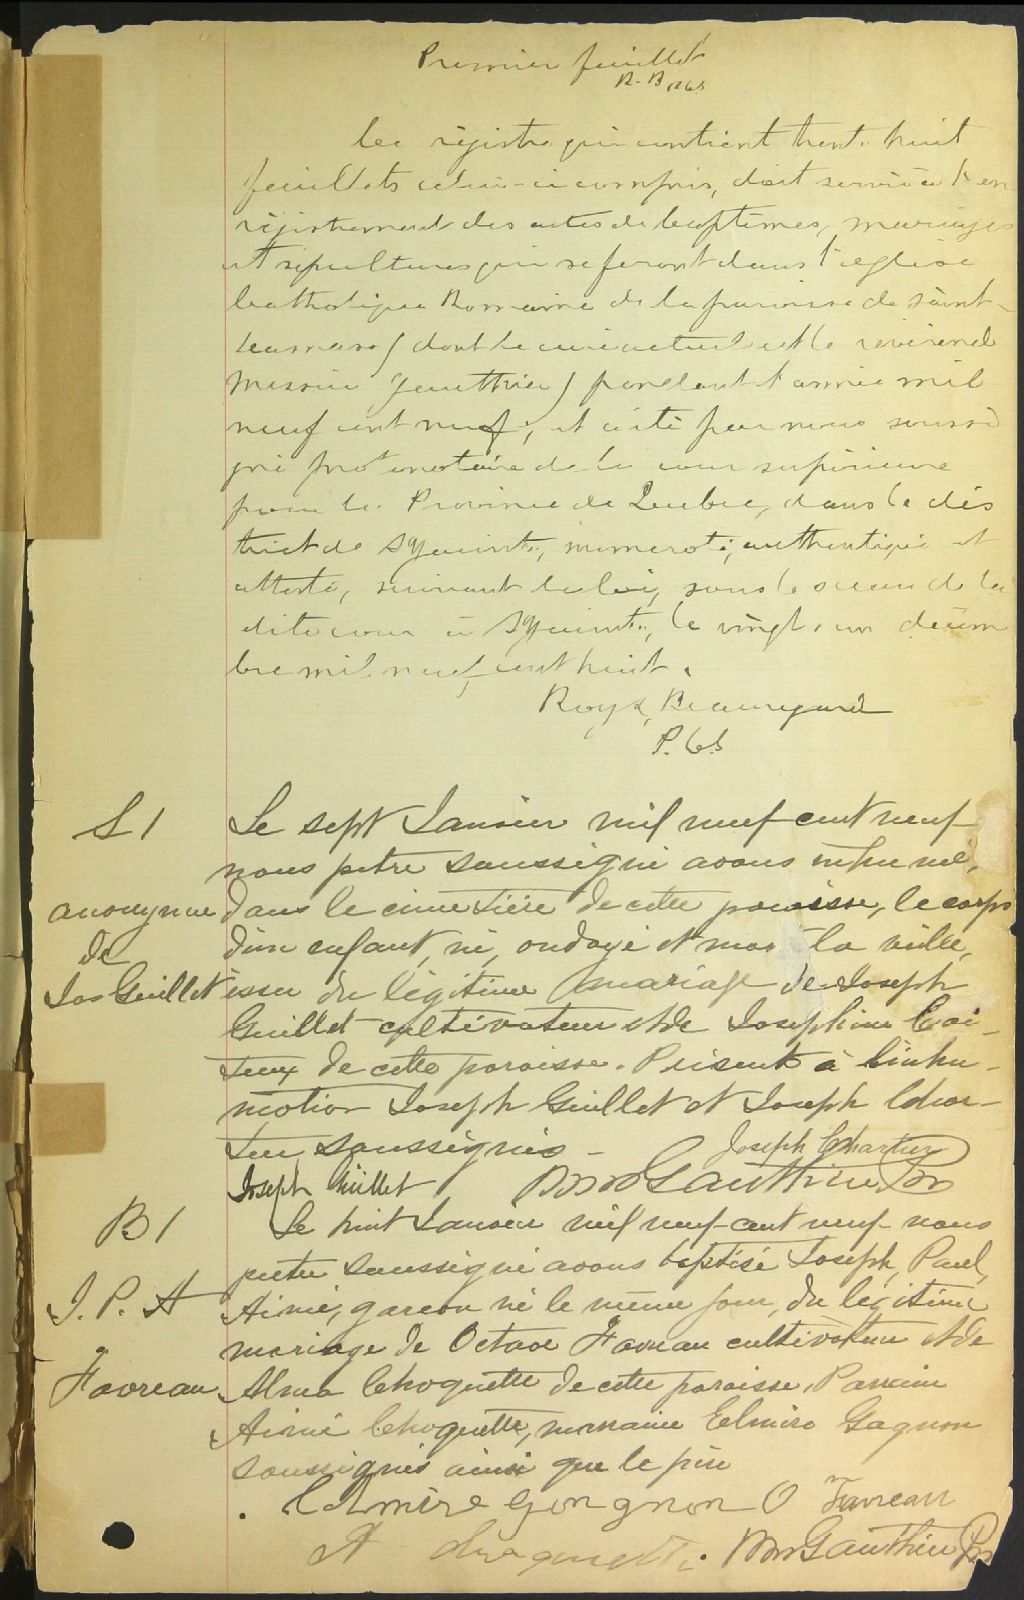 Premier feuillet
R. B. P.C.S
Ce régistre qui contient trente huit
feuillets celui-ci compris, doit servir à l'en
régistrement des actes de baptêmes, mariages
et sépultures qui se feront dans l'église
Catholique Romaine de la paroisse de Saint-
Damase (dont le curé actuel est le révérend
Messire Gauthier) pendant l'année mil
neuf cent neuf, et a été par nous soussi
gné protonotaire de la cour supérieure
pour la Province de Québec, dans le dis
trict de St Hyacinthe, numéroté, authentiqué et
attesté, suivant la loi, sous le sceau de la
dite cour à St Hyacinthe, le vingt-un décem
bre mil neuf cent huit.
Roy & Beauregard
P. C. S
S 1
Le sept Janvier mil neuf cent neuf
nous prêtre soussigné avons inhumé,
anonyme
dans le cimetière de cette paroisse, le corps
de
d'un enfant, né, ondoyé et mort la veille,
Jos Guillet
issu du légitime mariage de Joseph
Guillet cultivateur et de Josephine Coi-
teux de cette paroisse. Présents à l'inhu-
mation Joseph Guillet et Joseph Char-
tier soussignés -
Joseph Chartier
Joseph Guillet
Gauthier Ptre
B 1
Le huit Janvier mil neuf cent neuf nous
prêtre soussigné avons baptisé Joseph, Paul,
J. P. A
Aimé, garçon né le même jour, du légitime
mariage de Octave Favreau cultivateur et de
Favreau
Alma Choquette de cette paroisse, Parrain
Aimé Choquette, marraine Elmire Gagnon
soussignés ainsi que le père
Elmire Gongnon O Favreau
A Gauthier Ptre